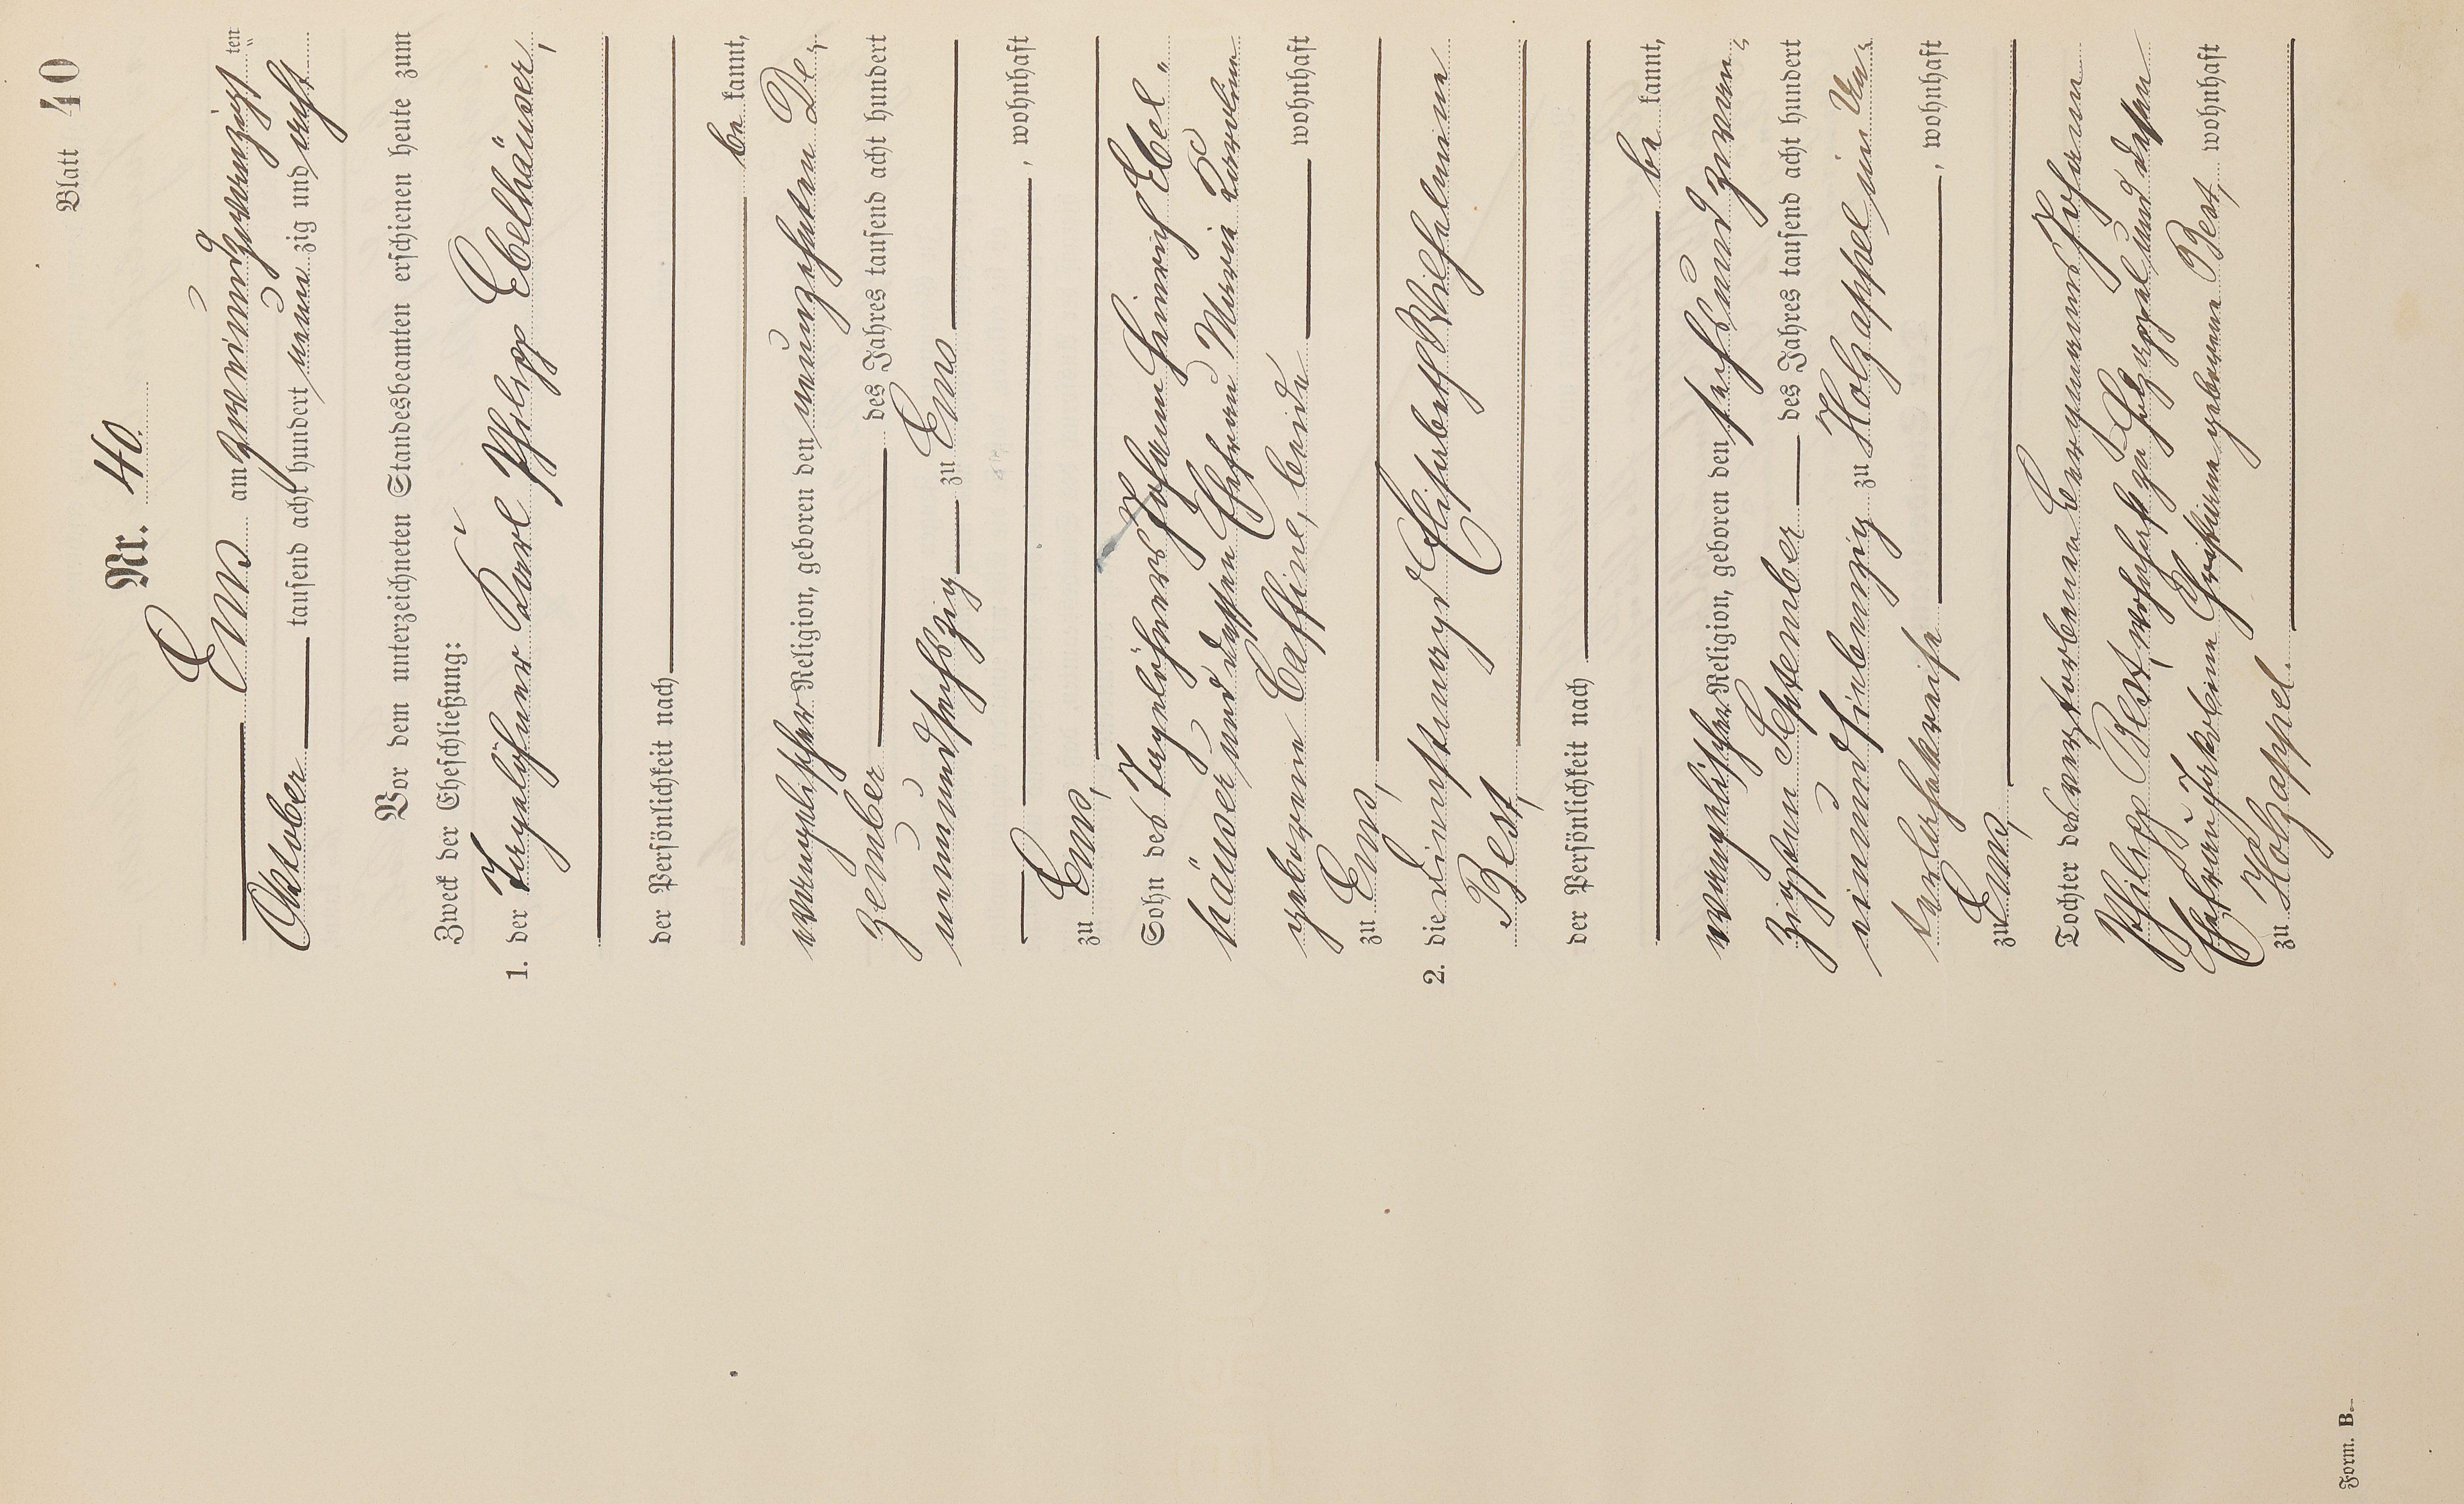 Blatt 40
Nr. 40.
Ems am zweiundzwanzigsten
Oktober tausend acht hundert neunzig und acht
Vor dem unterzeichneten Standesbeamten erschienen heute zum
Zweck der Eheschließung:
1. der Tagelöhner Karl Philipp Ebelhäuser,
der Persönlichkeit nach
be kannt,
evangelischer Religion, geboren den neunzehnten De-
zember des Jahres tausend acht hundert
neunundsechszig zu Ems
, wohnhaft
zu Ems,
Sohn des Tagelöhners Johann Heinrich Ebel-
häuser und dessen Ehefrau Maria Karoline
geborene Caffine, beide wohnhaft
zu Ems,
2. die Dienstmagd Elisabeth Wilhelmine
Best,
der Persönlichkeit nach
be kannt,
evangelischer Religion, geboren den sechsundzwan-
zigsten September des Jahres tausend acht hundert
einundsiebenzig zu Holzappel im Un-
terlahnkreise, wohnhaft
zu Ems,
Tochter des verstorbenen Bergmanns Johann
Philipp Best, wohnhaft zu Holzappel und dessen
Ehefrau Christiane geborene Best, wohnhaft
zu Holzappel.
Form. B.